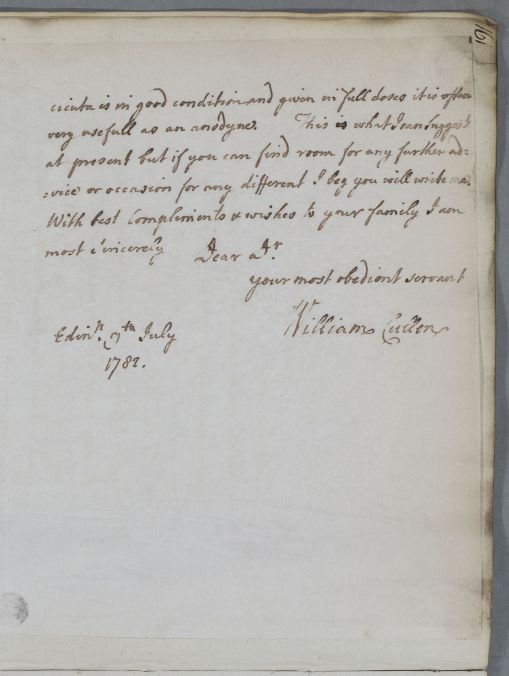 161
cicuta is in good condition and given in full doses it is often
very usefull as an anodyne. This is what I can suggest
at present but if you can find room for any further ad-
-vice or occasion for any different I beg you will write me.
With best Complements & wishes to your family I am
most sincerely Dear Sr.
your most obedient servant
William Cullen
Edinr. 9th July
1782.